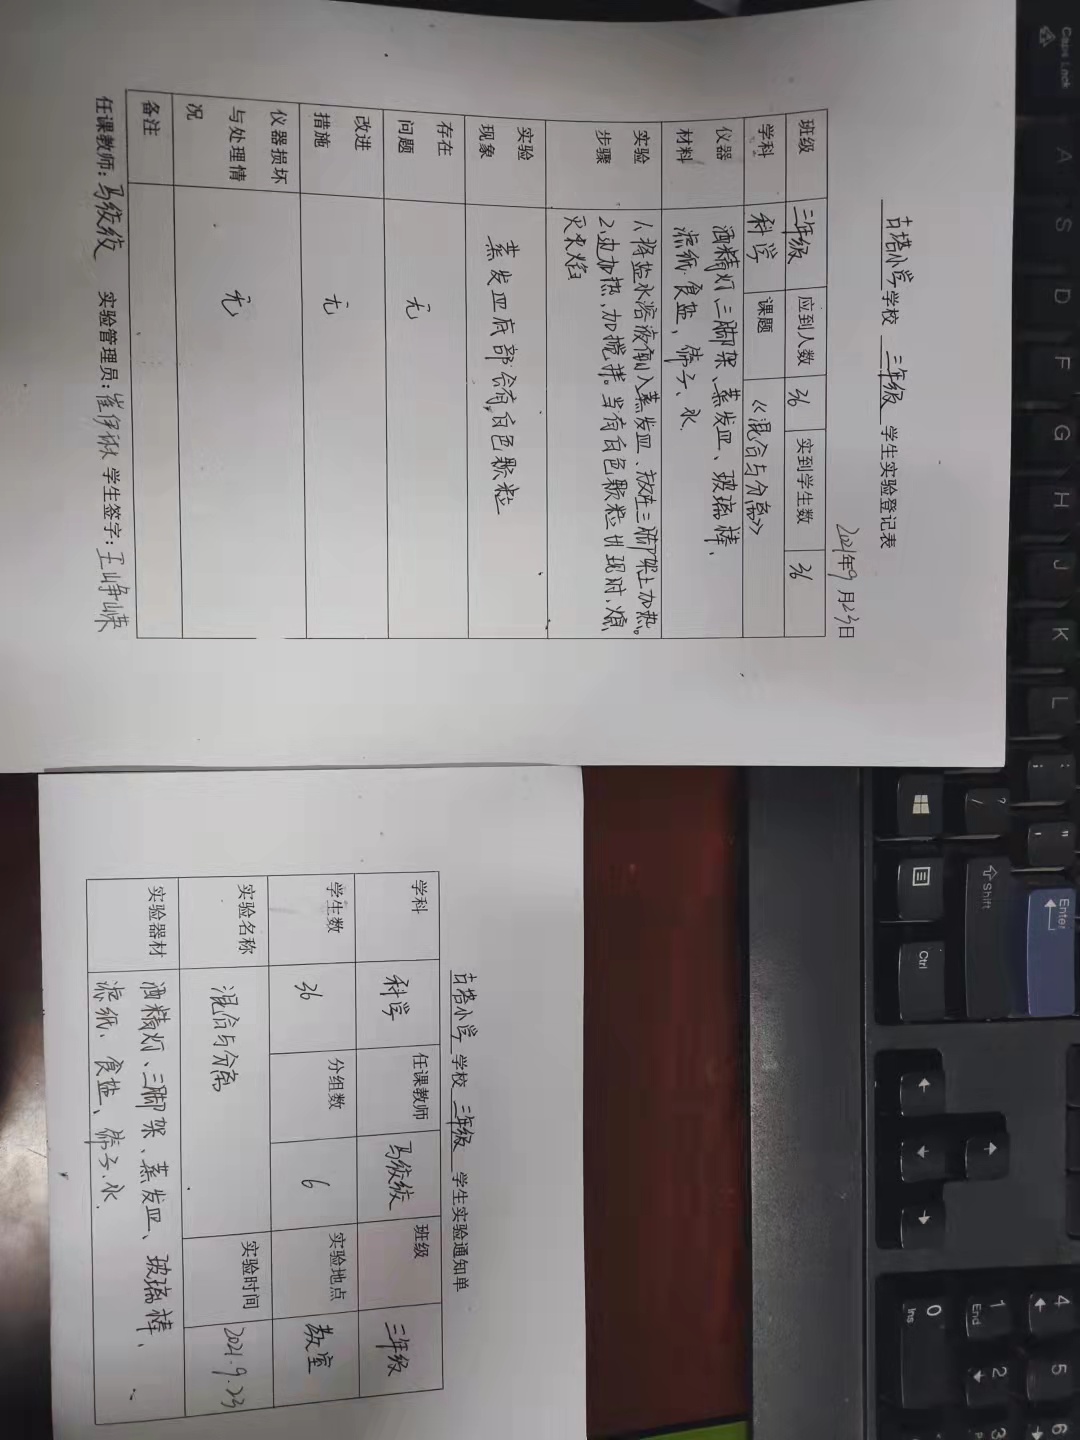 古塔小学学校 三年级 学生实验登记表
2021年9月23日
班级 三年级 应到人数 36 实到学生数 36
学科 科学 课题 《混合与分离》
仪器材料 酒精灯、三脚架、蒸发皿、玻璃棒、
滤纸、食盐、筛子、水.
实验步骤 1、将盐水溶液倒入蒸发皿、放在三脚架上加热。
2、边加热,加搅拌。当有白色颗粒出现时,熄
灭火焰
实验现象 蒸发皿底部会有白色颗粒
存在问题 无
改进措施 无
仪器损坏与处理情况 无
备注
任课教师:马筱筱 实验管理员:崔伊秋 学生签字:王峥嵘
古塔小学 学校 三年级 学生实验通知单
学科 科学 任课教师 马筱筱 班级 三年级
学生数 36 分组数 6 实验地点 教室
实验名称 混合与分离 实验时间 2021.9.23
实验器材 酒精灯、三脚架、蒸发皿、玻璃棒、
滤纸、食盐、筛子.水.
Caps Lock
A S D F G H J K L : ; " ' Enter
? / Shift
Ctrl
4 5 6
1 End 2 3
0 Ins